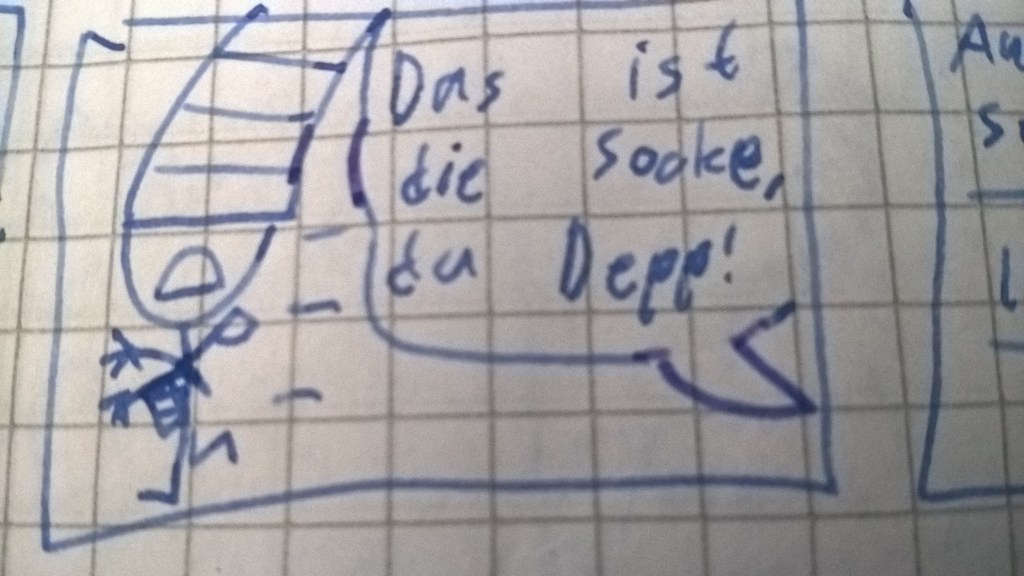 Das ist
die Socke,
du Depp!
Au